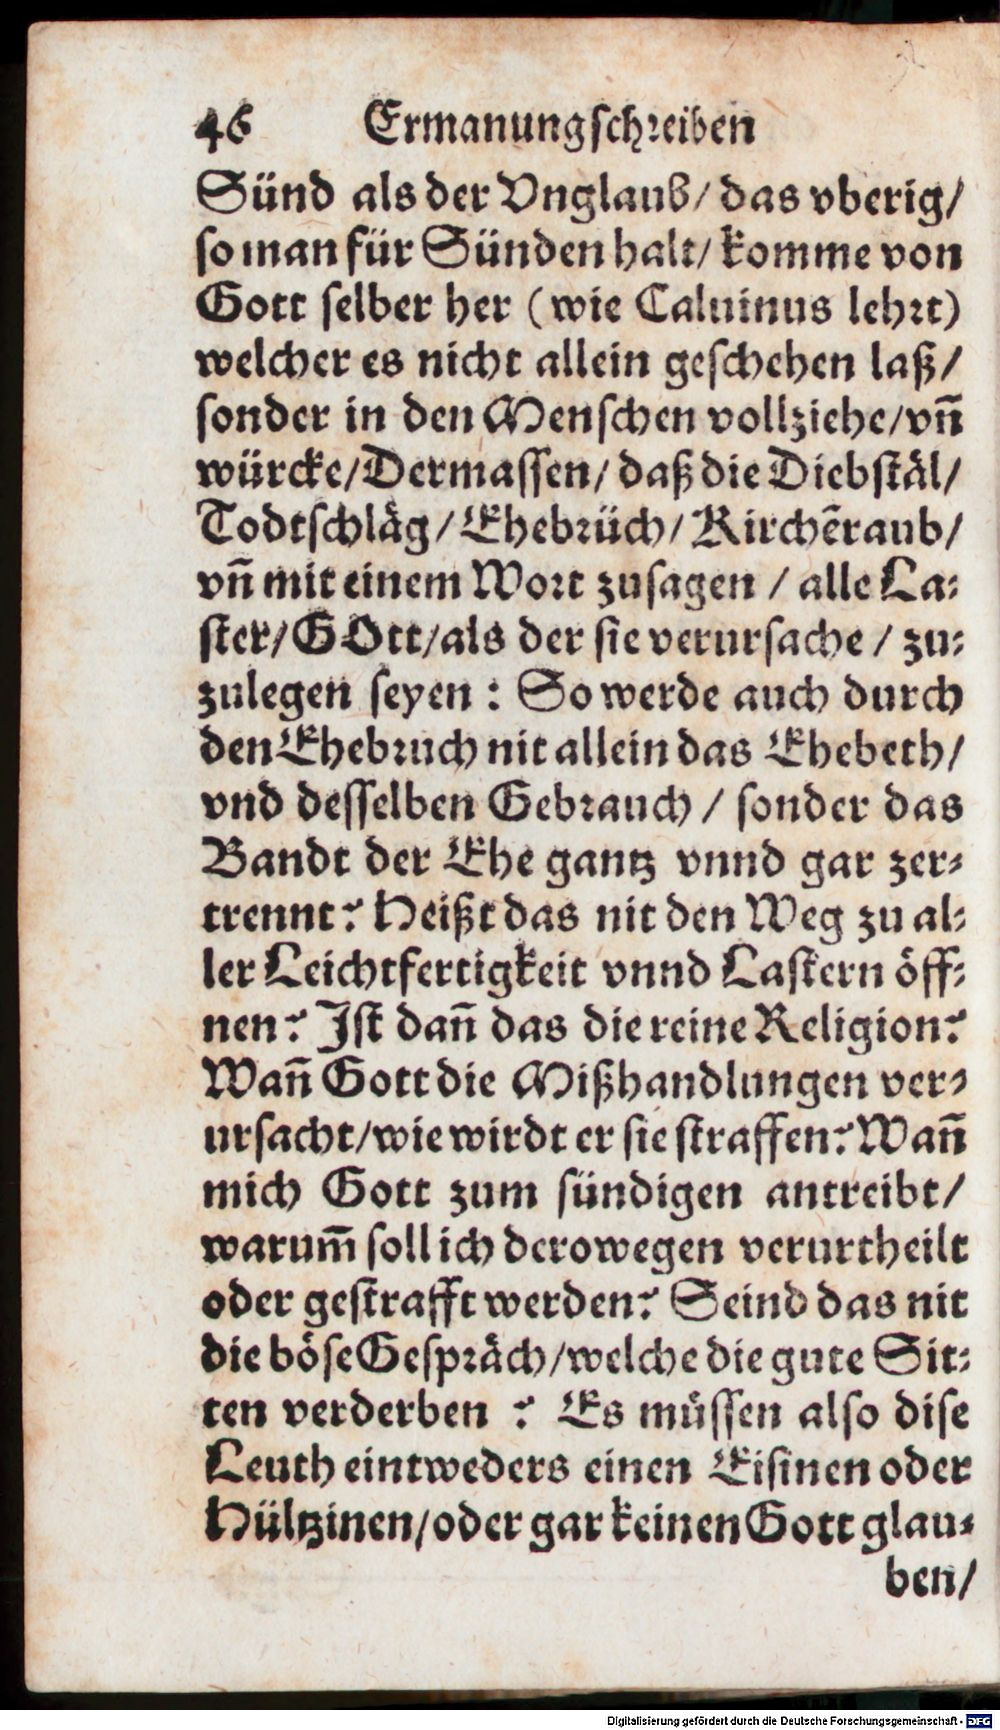 46 Ermanungschreiben
Sünd als der Vnglaub/ das vberig/
so man für Sünden halt/ komme von
Gott selber her (wie Caluinus lehrt)
welcher es nicht allein geschehen laß/
sonder in den Menschen vollziehe/vñ
würcke/Dermassen/ daß die Diebstäl/
Todtschläg/ Ehebrüch/ Kirchẽraub/
vñ mit einem Wort zusagen / alle La-
ster/GOtt/als der sie verursache / zu-
zulegen seyen : So werde auch durch
den Ehebruch nit allein das Ehebeth/
vnd desselben Gebrauch / sonder das
Bandt der Ehe gantz vnnd gar zer-
trennt? Heißt das nit den Weg zu al-
ler Leichtfertigkeit vnnd Lastern öff-
nen? Ist dañ das die reine Religion?
Wañ Gott die Mißhandlungen ver-
ursacht/wie wirdt er sie straffen? Wañ
mich Gott zum sündigen antreibt/
warum̃ soll ich derowegen verurtheilt
oder gestrafft werden? Seind das nit
die böse Gespräch/welche die gute Sit-
ten verderben ? Es müssen also dise
Leuth eintweders einen Eisinen oder
Hültzinen/oder gar keinen Gott glau-
ben/
Digitalisierung gefördert durch die Deutsche Forschungsgemeinschaft - DFG